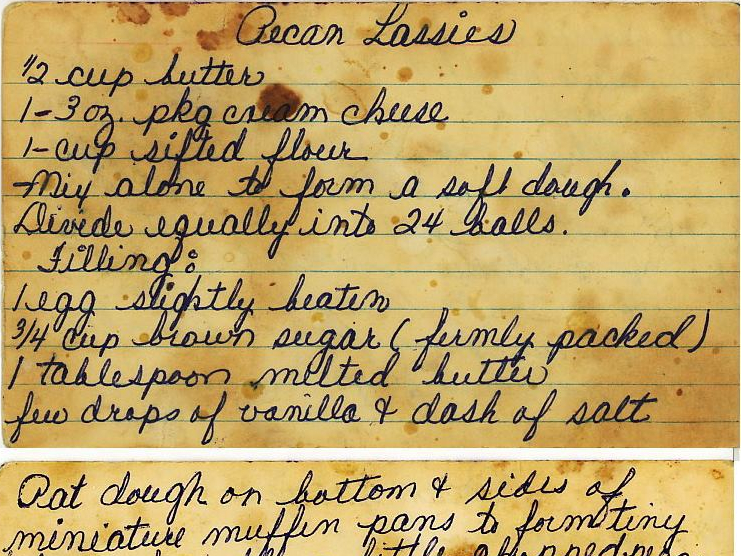 Pecan Lassies
1/2 cup butter
1-3 oz. pkg cream cheese
1-cup sifted flour
-Mix alone to form a soft dough.
Divide equally into 24 balls.
Filling:
1 egg slightly beaten
3/4 cup brown sugar (firmly packed)
1 tablespoon melted butter
few drops of vanilla & dash of salt
Pat dough on bottom & sides of
miniature muffin pans to form tiny
little